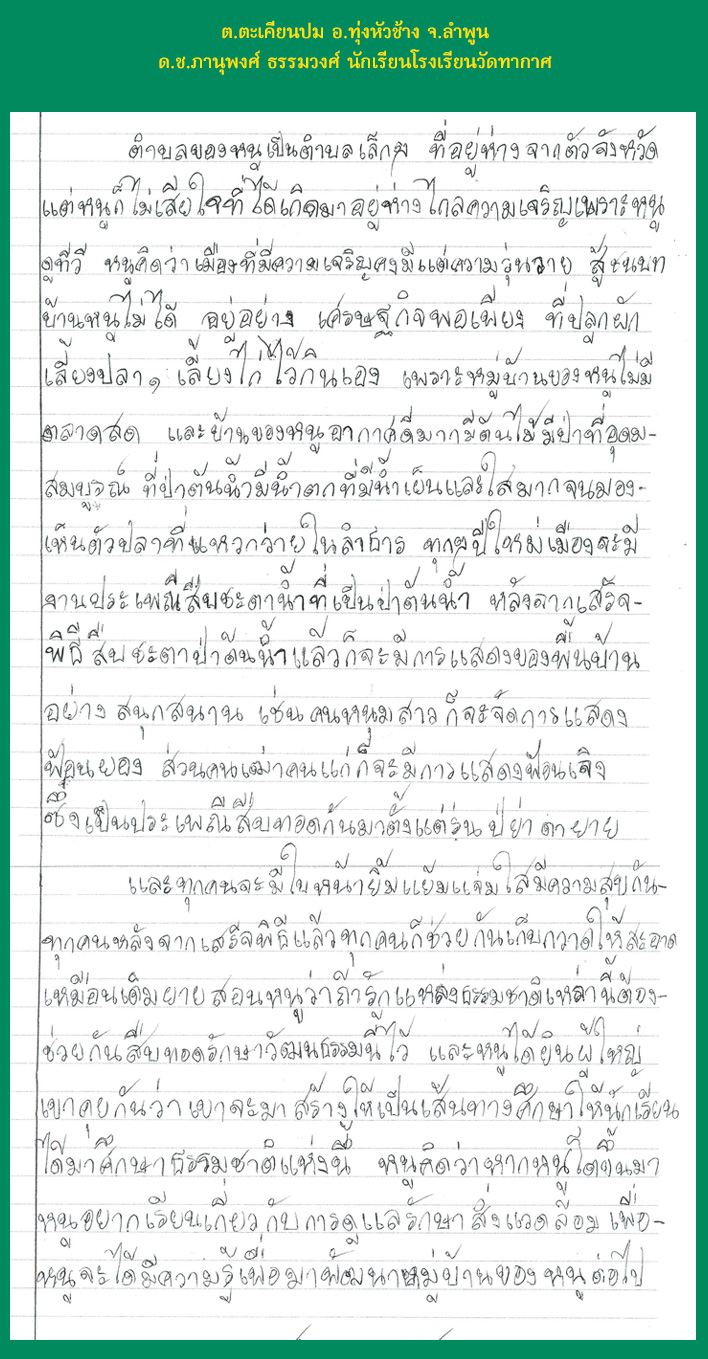 ต.ตะเคียนปม อ.ทุ่งหัวช้าง จ.ลำพูน
ด.ช.ภานุพงศ์ ธรรมวงศ์ นักเรียนโรงเรียนวัดทากาศ
ตำบลของหนูเป็นตำบลเล็กๆ ที่อยู่ห่างจากตัวจังหวัด
แต่หนูก็ไม่เสียใจที่ได้เกิดมาอยู่ห่างไกลความเจริญเพราะหนู
ดูทีวี หนูคิดว่าเมืองที่มีความเจริญคงมีแต่ความวุ่นวาย สู้ชนบท
บ้านหนูไม่ได้ อยู่อย่าง เศรษฐกิจพอเพียง ที่ปลูกผัก
เลี้ยงปลา, เลี้ยงไก่ไว้กินเอง เพราะหมู่บ้านของหนูไม่มี
ตลาดสด และบ้านของหนูอากาศดีมากมีต้นไม้มีป่าที่อุดม-
สมบูรณ์ ที่ป่าต้นน้ำมีน้ำตกที่มีน้ำเย็นและใสมากจนมอง-
เห็นตัวปลาที่แหวกว่ายในลำธาร ทุกๆปีใหม่เมืองจะมี
งานประเพณีสืบชะตาน้ำที่เป็นป่าต้นน้ำ หลังจากเสร็จ-
พิธีสืบชะตาป่าต้นน้ำแล้วก็จะมีการแสดงของพื้นบ้าน
อย่างสนุกสนาน เช่นคนหนุ่มสาวก็จะจัดการแสดง
ฟ้อนยอง ส่วนคนเฒ่าคนแก่ก็จะมีการแสดงฟ้อนเจิง
ซึ่งเป็นประเพณีสืบทอดกันมาตั้งแต่รุ่น ปู่ย่า ตายาย
และทุกคนจะมีใบหน้ายิ้มแย้มแจ่มใสมีความสุขกัน-
ทุกคนหลังจากเสร็จพิธีแล้วทุกคนก็ช่วยกันเก็บกวาดให้สะอาด
เหมือนเดิมยายสอนหนูว่าถ้ารักแหล่งธรรมชาติเหล่านี้ต้อง-
ช่วยกันสืบทอดรักษาวัฒนธรรมนี้ไว้ และหนูได้ยินผู้ใหญ่
เขาคุยกันว่าเขาจะมาสร้างให้เป็นเส้นทางศึกษาให้นักเรียน
ได้มาศึกษาธรรมชาติแห่งนี้ หนูคิดว่าหากหนูโตขึ้นมา
หนูอยากเรียนเกี่ยวกับการดูแลรักษาสิ่งแวดล้อมเพื่อ-
หนูจะได้มีความรู้เพื่อมาพัฒนาหมู่บ้านของหนูต่อไป